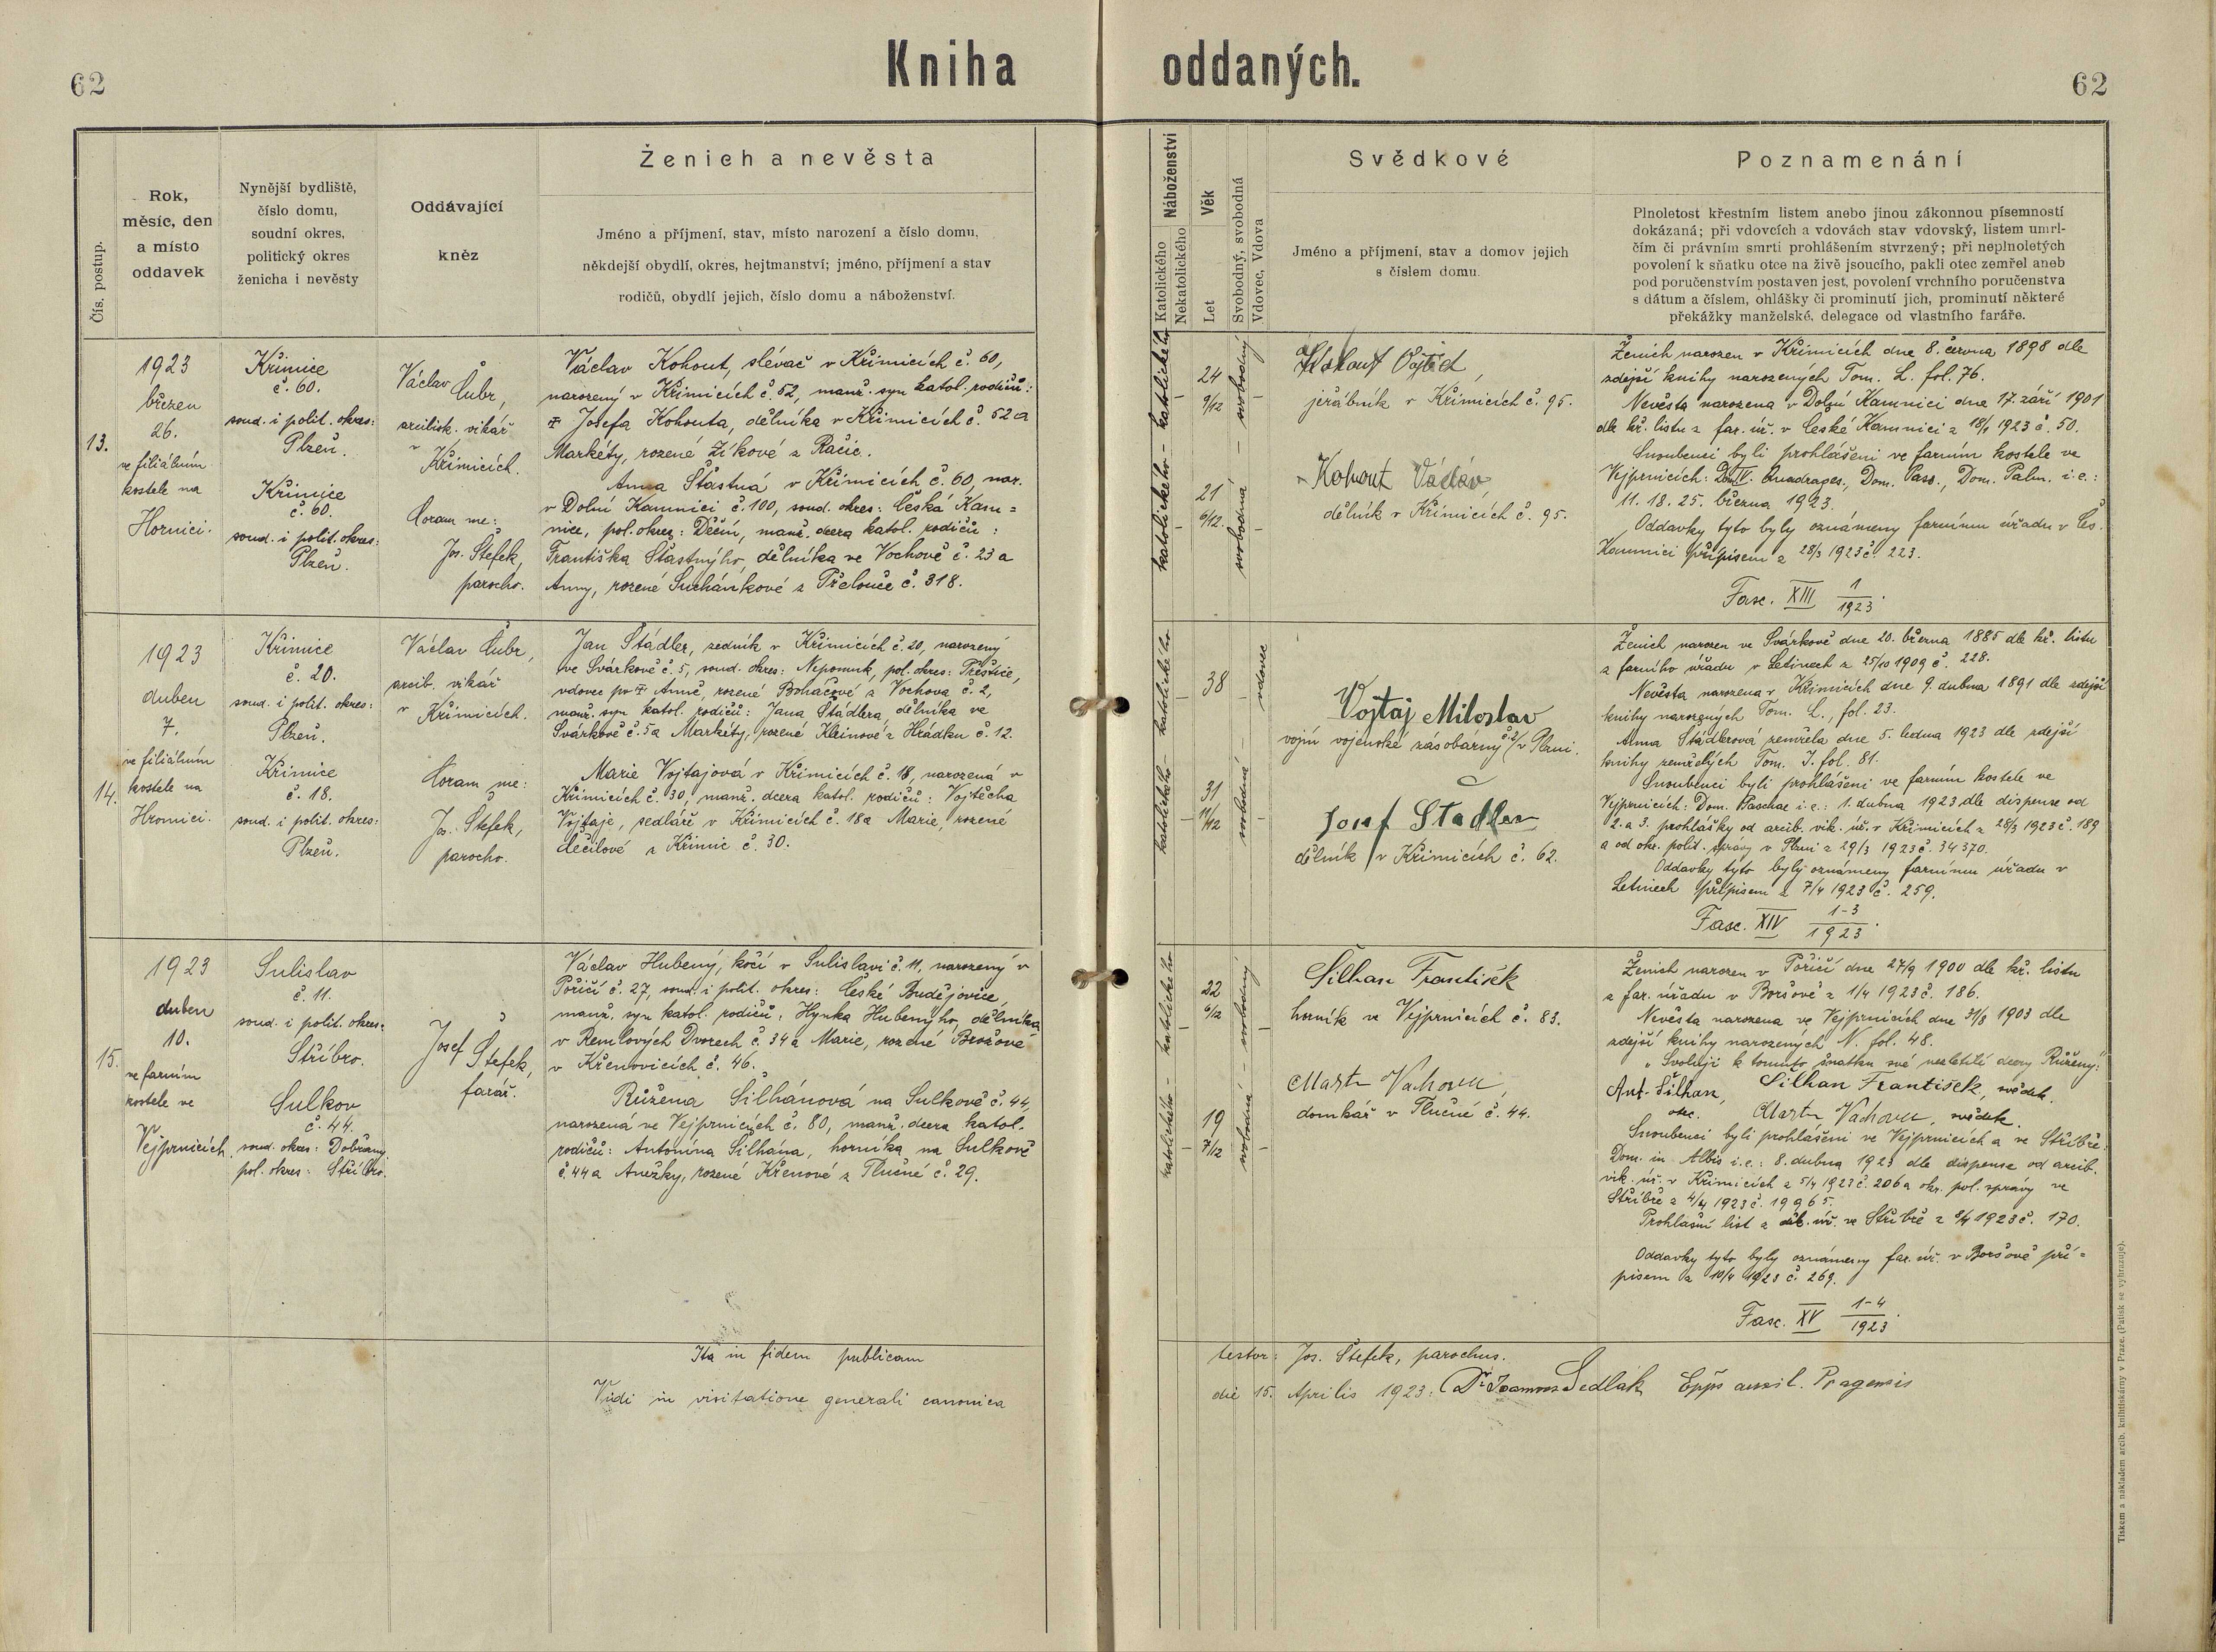 62
Kniha oddaných.
62
Čís. postup.
Rok,
měsíc, den
a místo
oddavek
Nynější bydliště,
číslo domu,
soudní okres,
politický okres
ženicha i nevěsty
Oddávající
kněz
Ženich a nevěsta
Jméno a příjmení, stav, místo narození a číslo domu,
někdejší obydlí, okres, hejtmanství; jméno, příjmení a stav
rodičů, obydlí jejich, číslo domu a náboženství.
Náboženství
Katolického
Nekatolického
Věk
Let
Svobodný, svobodná
Vdovec, Vdova
Svědkové
Jméno a příjmení, stav a domov jejich
s číslem domu.
Poznamenání
Plnoletost křestním listem anebo jinou zákonnou písemností
dokázaná; při vdovcích a vdovách stav vdovský, listem umrl-
čím či právním smrti prohlášením stvrzený; při neplnoletých
povolení k sňatku otce na živě jsoucího, pakli otec zemřel aneb
pod poručenstvím postaven jest, povolení vrchního poručenstva
s dátum a číslem, ohlášky či prominutí jich, prominutí některé
překážky manželské, delegace od vlastního faráře.
13.
1923
březen
26.
ve filiálním
kostele na
Hornici.
Křimice
č. 60.
soud. i polit. okres:
Plzeň.
Křimice
č. 60.
soud. i polit. okres:
Plzeň.
Václav
Čubr,
arcibisk. vikář
v
Křimicích.
Coram me:
Jos. Štefek,
parocho.
Václav Kohout, slévač v Křimicích č. 60,
narozený v Křimicích č. 52, manž. syn katol. rodičů:
Josefa Kohouta, dělníka v Křimicích č. 52 a
Markéty, rozené Zíkové z Račic.
Anna Šťastná v Křimicích č. 60, nar.
v Dolní Kamnici č. 100, soud. okres: Česká Kam=
nice, pol. okres: Děčín, manž. dcera katol. rodičů:
Františka Šťastnýho, dělníka ve Vochově č. 23 a
Anny, rozené Suchánkové z Přelouče č. 318.
katolického – katolického
24
9/12
21
6/12
svobodná – svobodný
Kohout Vojtěch,
jeřábník v Křimicích č. 95.
Kohout Václav,
dělník v Křimicích č. 95.
Ženich narozen v Křimicích dne 8. června 1898 dle
zdejší knihy narozených Tom. L. fol. 76.
Nevěsta narozena v Dolní Kamnici dne 17. září 1901
dle kř. listu z far. úř. v České Kamnici z 18/1 1923 č. 50.
Snoubenci byli prohlášeni ve farním kostele ve
Vejprnicích: Dom. IV. Quadrages., Dom. Pass., Dom. Palm. i.e.:
11. 18. 25. března 1923.
Oddavky tyto byly oznámeny farnímu úřadu v Čes.
Kamnici přípisem z 28/3 1923 č. 223.
Fasc. XIII 1/1923.
14.
1923
duben
7.
ve filiálním
kostele na
Hromici.
Křimice
č. 20.
soud. i polit. okres:
Plzeň.
Křimice
č. 18.
soud. i polit. okres:
Plzeň.
Václav Čubr,
arcib. vikář
v
Křimicích.
Coram me:
Jos. Štefek,
parocho.
Jan Štádler, zedník v Křimicích č. 20, narozený
ve Svárkově č. 5, soud. okres: Nepomuk, pol. okres: Přeštice,
vdovec po Anně, rozené Boháčové z Vochova č. 2,
manž. syn katol. rodičů: Jana Štádlera, dělníka ve
Svárkově č. 5 a Markéty, rozené Kleinové z Hrádku č. 12.
Marie Vojtajová v Křimicích č. 18, narozená v
Křimicích č. 30, manž. dcera katol. rodičů: Vojtěcha
Vojtaje, sedláře v Křimicích č. 18 a Marie, rozené
z Křimic č. 30.
katolického – katolického
38
31
11/12
svobodná – vdovec
Vojtaj Miloslav
vojín vojenské zásobárny č. 2/ v Plzni.
Josef Stadler
dělník v Křimicích č. 62.
Ženich narozen ve Svárkově dne 20. března 1885 dle kř. listu
z farního úřadu v Letinech z 25/10 1909 č. 228.
Nevěsta narozena v Křimicích dne 9. dubna 1891 dle zdejší
knihy narozených Tom. L., fol. 23.
Anna Štádlerová zemřela dne 5. ledna 1923 dle zdejší
knihy zemřelých Tom. J. fol. 81.
Snoubenci byli prohlášeni ve farním kostele ve
Vejprnicích: Dom. Paschae i.e.: 1. dubna 1923 dle dispense od
2. a 3. prohlášky od arcib. vik. úř. v Křimicích z 28/3 1923 č. 189
a od okr. polit. správy v Plzni z 29/3 1923 č. 34370.
Oddavky tyto byly oznámeny farnímu úřadu v
Letinech přípisem z 7/4 1923 č. 259.
Fasc. XIV 1-3/1923.
15.
1923
duben
10.
ve farním
kostele ve
Vejprnicích.
Sulislav
č. 11.
soud. i polit. okres:
Stříbro.
Sulkov
č. 44.
soud. okres: Dobřany
pol. okres: Stříbro.
Josef
Štefek,
farář.
Václav Hubený, kočí v Sulislavi č. 11, narozený v
Poříčí č. 27, soud. i polit. okres: České Budějovice,
manž. syn katol. rodičů: Hynka Hubenýho, dělníka
v Remlových Dvorech č. 34 a Marie, rozené Brožové
v Křenovicích č. 46.
Růžena Šilhánová na Sulkově č. 44,
narozená ve Vejprnicích č. 80, manž. dcera katol.
rodičů: Antonína Šilhána, horníka na Sulkově
č. 44 a Anežky, rozené Křenové z Tlučné č. 29.
katolického – katolického
22
6/12
19
7/12
svobodná – svobodný
Silhan František
horník ve Vejprnicích č. 83.
Martin
domkář v Tlučné č. 44.
Ženich narozen v Poříčí dne 27/9 1900 dle kř. listu
z far. úřadu v Boršově z 1/4 1923 č. 186.
Nevěsta narozena ve Vejprnicích dne 31/8 1903 dle
zdejší knihy narozených N. fol. 48.
„Svoluji k tomuto sňatku své nezletilé dcery Růženy:
Ant. Šilhan, Silhan František, svědek.
otec. Martin svědek.
Snoubenci byli prohlášeni ve Vejprnicích a ve Stříbře:
Dom. in Albis i.e.: 8. dubna 1923 dle dispense od arcib.
vik. úř. v Křimicích z 5/4 1923 č. 206 a okr. pol. správy ve
Stříbře z 4/4 1923 č. 19965.
Prohlášní list z úř. ve Stříbře z 1923 č. 170.
Oddavky tyto byly oznámeny far. úř. v Boršově pří=
pisem z 10/4 1923 č. 269.
Fasc. XV 1-4/1923.
Ita in fidem publicam testor: Jos. Štefek, parochus.
Vidi in visitatione generali canonica die 15. Aprilis 1923: Dr. Joannes Sedlák Epps auxil. Pragensis
Tiskem a nákladem arcib. knihtiskárny v Praze. (Patisk se vyhrazuje).